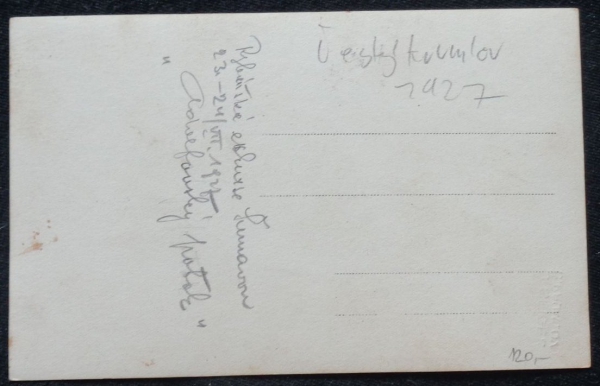 Český Krumlov
1927
Rybářská exkurse Šumavou
23.-24/VII. 1927
„Adolfovský potok"
120,-